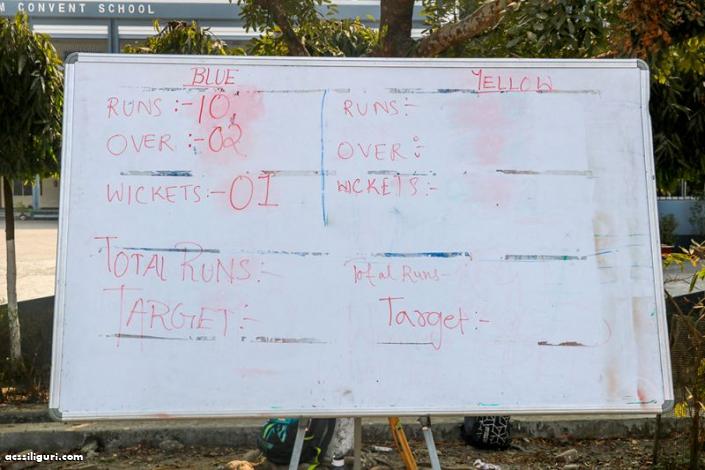 M CONVENT SCHOOL
BLUE
RUNS :- 10
OVER :- 02
WICKETS:- 01
TOTAL RUNS:-
TARGET:-
YELLOW
RUNS:-
OVER:-
WICKETS:-
Total Runs-
Target:-
acssiliguri.com